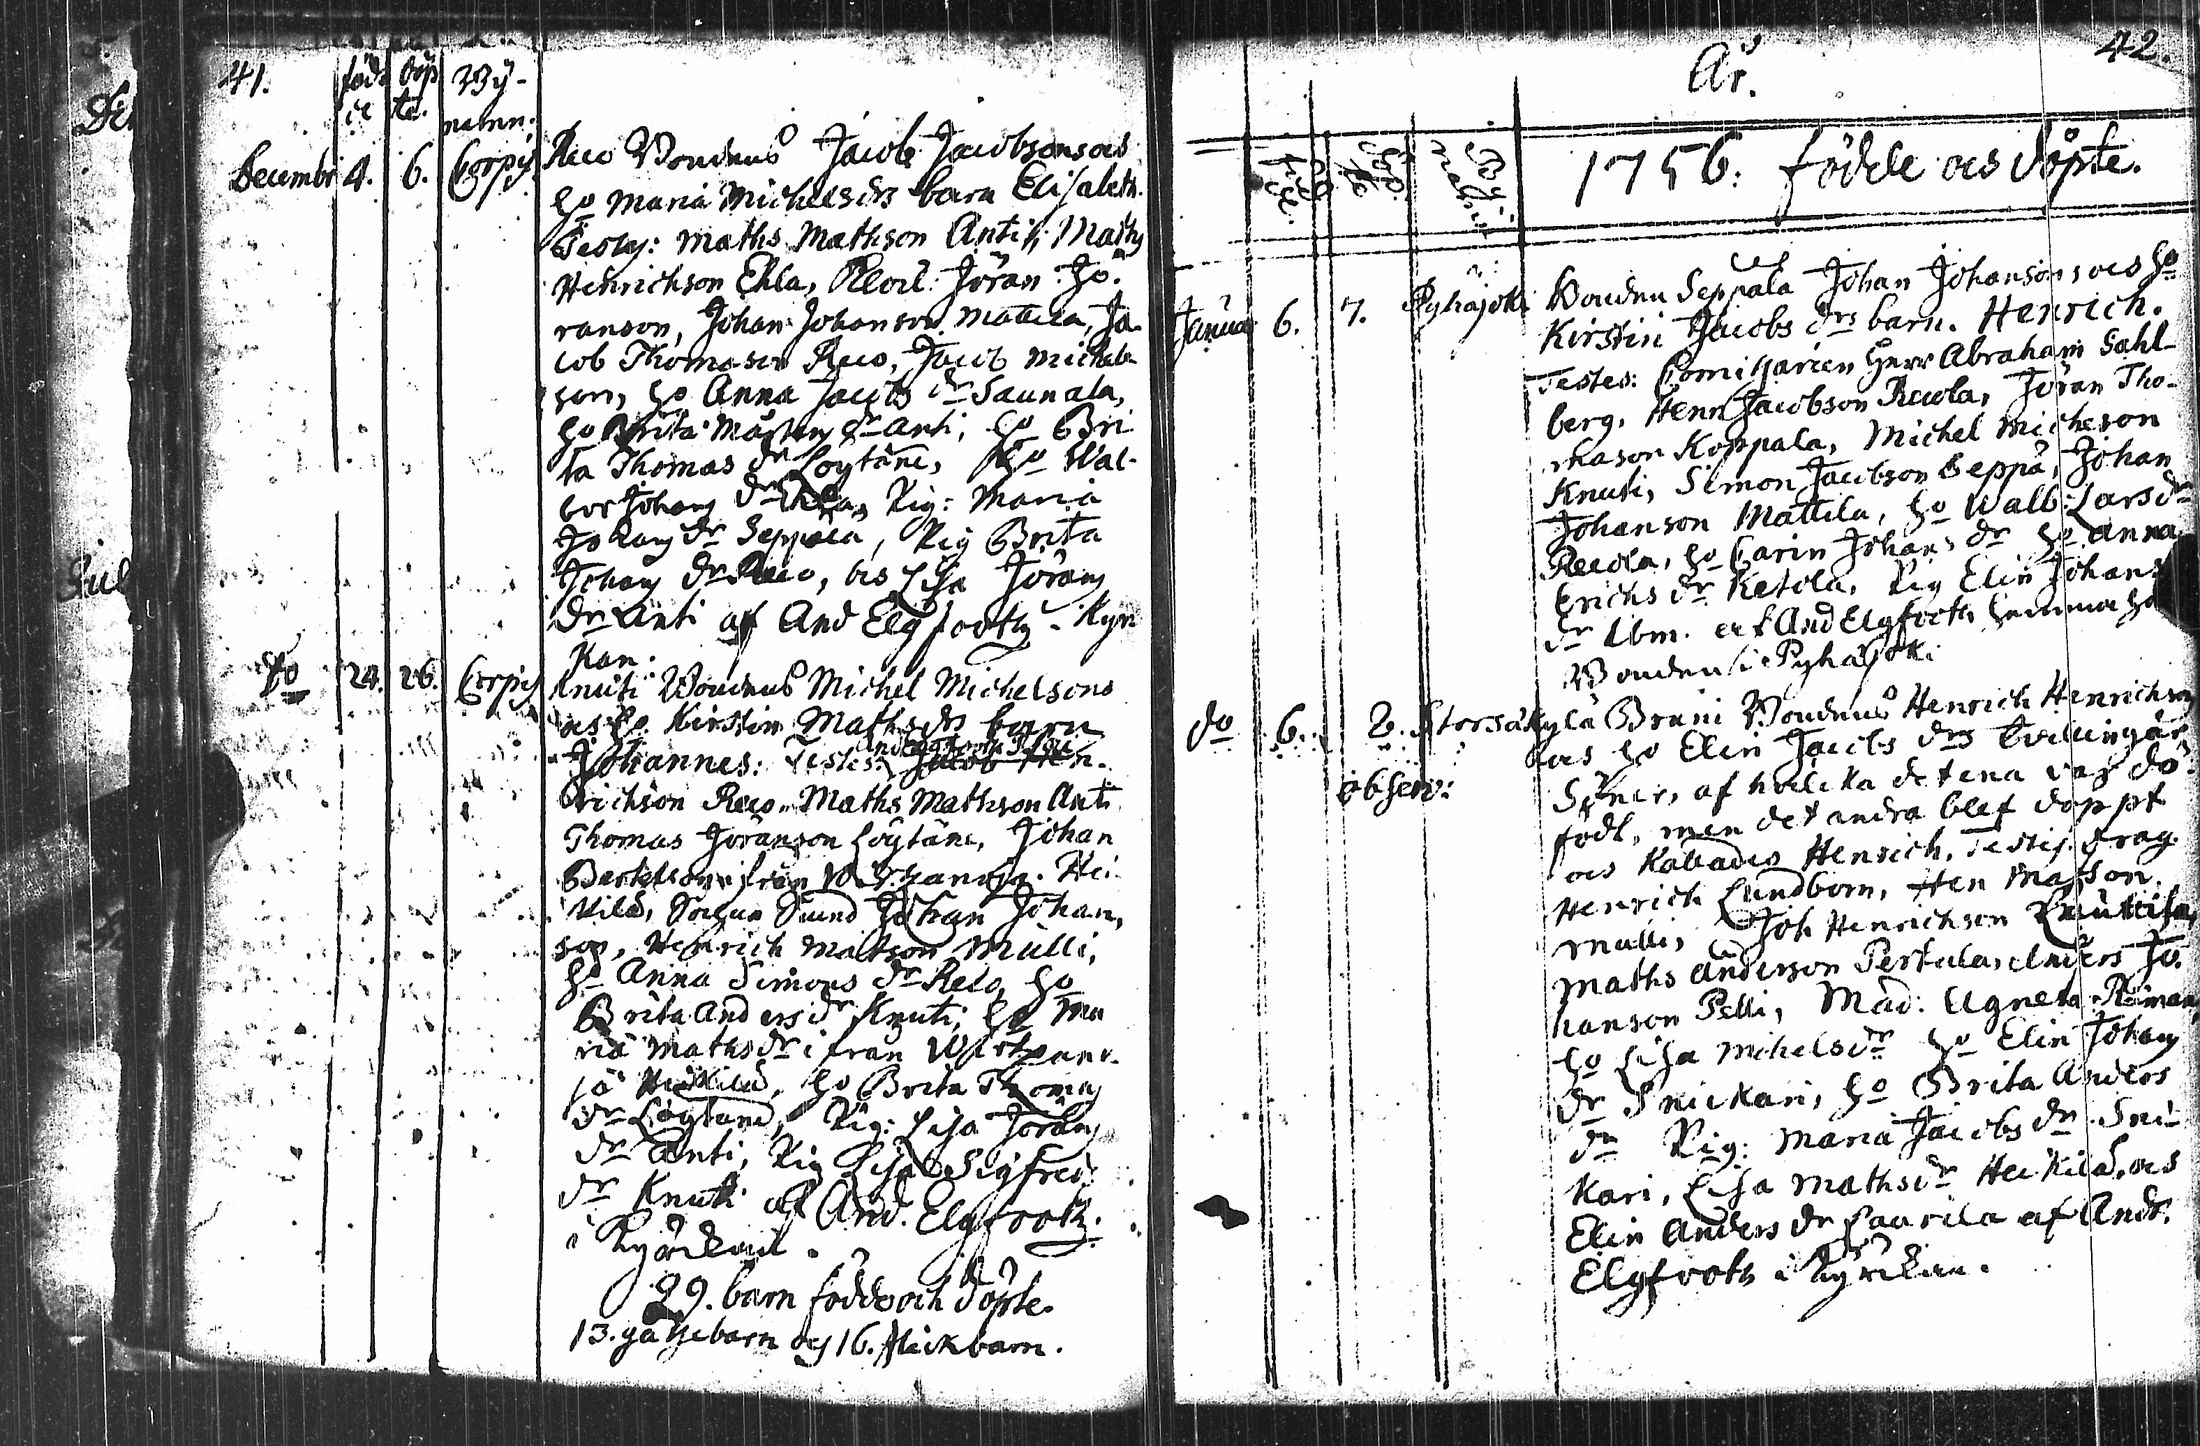 41. född ie döp te. Bÿ- namn.
Decembr 4. 6. Corpis Reco Bondens Jacob Jacobsons oes
ho Maria Michelsdrs barn Elisabeth.
Testes: Maths Mathson Anti, Maths
Henrichson Ehla, Jöran Jö-
ranson, Johan Johanson Mattila, Ja-
cob Thomason Reco, Jacob Michels-
son, ho Anna Jacobs dr Saunala,
ho Brita Mårtens dr Anti, ho Bri
ta Thomas dr Loytäne, ho Wal-
bor Johans dr Ehla, Pig: Maria
Johans dr Seppälä, Pig Brita
Johans dr Reco, oes Lisa Jörans
dr Anti af And Elgfooth - Kyr
kan.
do 24. 26. Corpis Knuti Bondens Michel Michelsons
oes ho. Kirstin Mathsdrs barn
Johannes: Testes: Jacob Hen-
richson Reco, Maths Mathson Anti
Thomas Joranson Loytäne, Johan
Bertelson ifrån Wirtzanoja. Hei
kilä, Johan Johan,
son, Henrich Matson Mulli,
ho Anna Simons dr Reco, ho
Brita Anders dr Knuti, ho Ma
ria Mathsdr ifrån Wirtzano-
ja Heikilä, ho Brita Thomas
dr Loytäne, Pig: Lisa Jörans
dr Anti, Pig Lisa Sigfreds
dr Knuti af And. Elgfooth.
i Kyrkan.
29. barn födde och döpte.
13. gåssebarn och 16. flickbarn.
42.
År.
född döp te Bÿ namn 1756: födde oes döpte.
Januar 6. 7. Pyhäjoki Bonden Seppälä Johan Johansons oes ho
Kirstin Jacobs drs barn. Henrich.
Testes: Comissarien Herr Abraham Sahl-
berg, Henr Jacobson Recola, Jöran Tho-
mason Koppala, Michel Michelson
Knuti, Simon Jacobson Seppä, Johan
Johanson Mattila, ho Walb: Lars dr
Recola, ho Carin Johans dr ho Anna
Erichs dr Ketola, Pig Elin Johans
dr Ibm. af And Elgfooth hemma hos
Bonden i Pyhäjoki
do 6. Storsäkylä Bruni Bondens Henrich Henrichson
oes ho Elin Jacobs drs tvillingar
observ: Söner, af hvilka det ena var död-
född, men det andra blef döppt
oes kallades Henrich. Testes:
Henrich Lundbom, Hen Matson
Mulli, Joh Henrichson
Maths Anderson Pertula, Anders Jo-
hanson Pelli, Mad: Agneta
ho Lisa Michelsdr ho Elin Johans
dr Snickari, ho Brita Anders
dr Pig: Maria Jacobs dr Sni-
kari, Lisa Mathsdr Heikilä, oes
Elin Anders dr Laurila af Andr.
Elgfooth i Kyrckan.